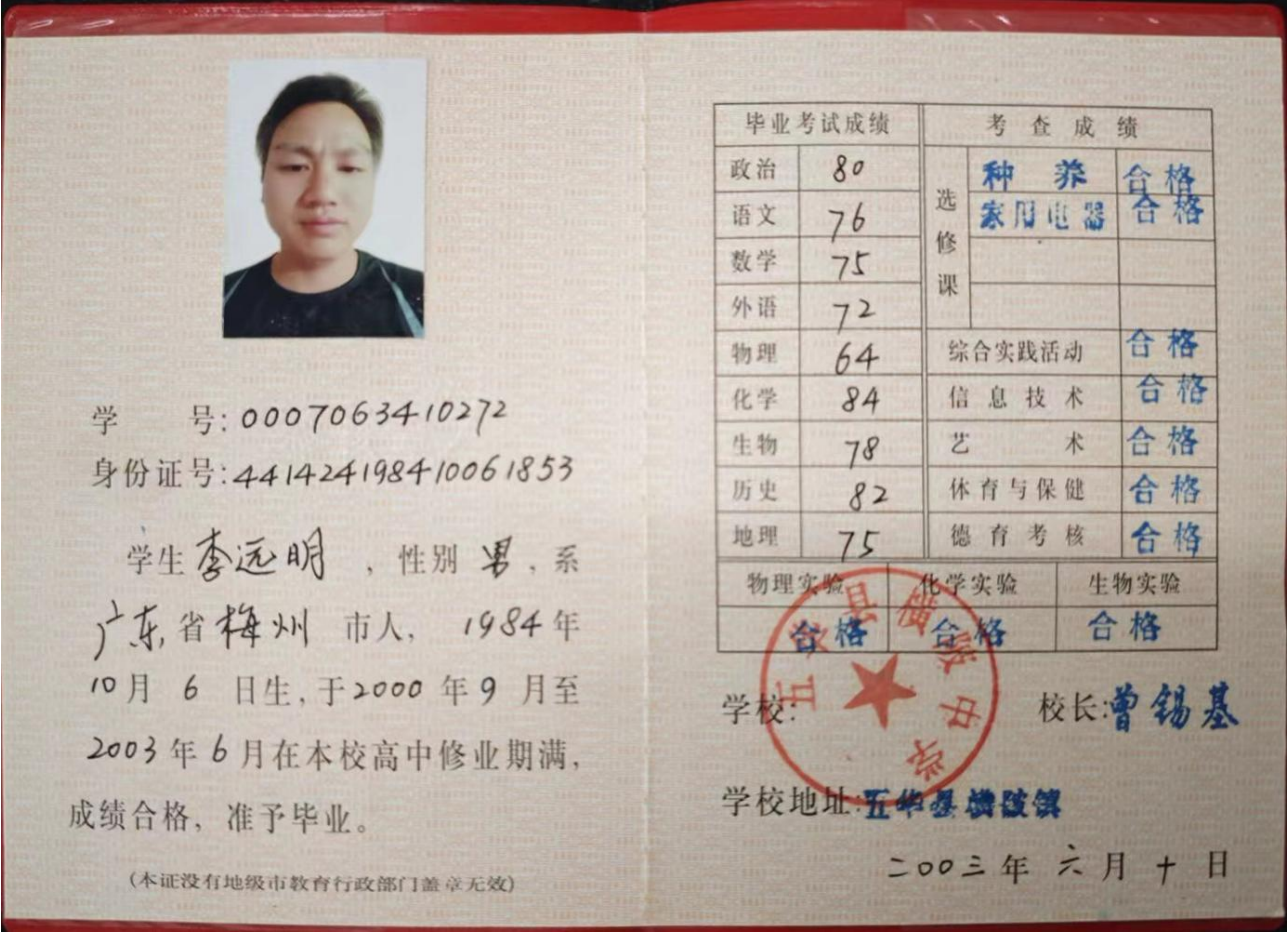 学 号:0007063410272
身份证号:441424198410061853
学生李远明，性别男，系
广东省梅州市人，1984年
10月6日生，于2000年9月至
2003年6月在本校高中修业期满，
成绩合格，准予毕业。
(本证没有地级市教育行政部门盖章无效)
毕业考试成绩 考查成绩
政治 80 选修课 种养 合格
语文 76 家用电器 合格
数学 75
外语 72
物理 64 综合实践活动 合格
化学 84 信息技术 合格
生物 78 艺术 合格
历史 82 体育与保健 合格
地理 75 德育考核 合格
物理实验 化学实验 生物实验
合格 合格 合格
五华县横陂中学
学校: 校长:曾锡基
学校地址:五华县横陂镇
二00三年六月十日